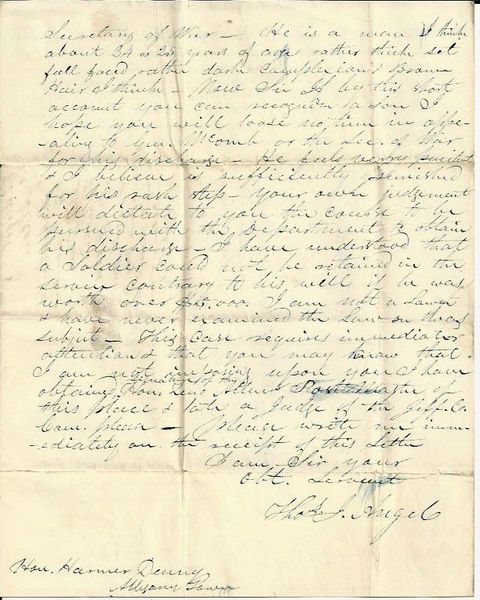 Secretary of War — He is a man I think
about 24 or 25 years of age rather thick set
full faced rather dark complexion Brown
Hair I think — Now Sir If by this short
account you can recognise a son I
hope you will loose no time in appe-
-aling to Genl McComb or the Sec. of War
for his discharge — He feels verry
& I believe is sufficiently punished
for his rash step — Your own judgement
will dictate to you the course to be
pursued with the Department to obtain
his discharge — I have understood that
a Soldier could not be retained in the
service contrary to his will if he was
worth over I am not a Lawer
& have never examined the Law on that
subject — This case requires immediate
attention & that you may know that
I am not imposing upon you I have
obtained signature of the Hon. Master of
this place & late a Judge of the Jeff. Co.
Com. pleas — please write me imm-
-ediately on the receipt of this Letter
I am Sir your
Obt. Servant
Thos. J. Angel
Hon. Harmer Denny